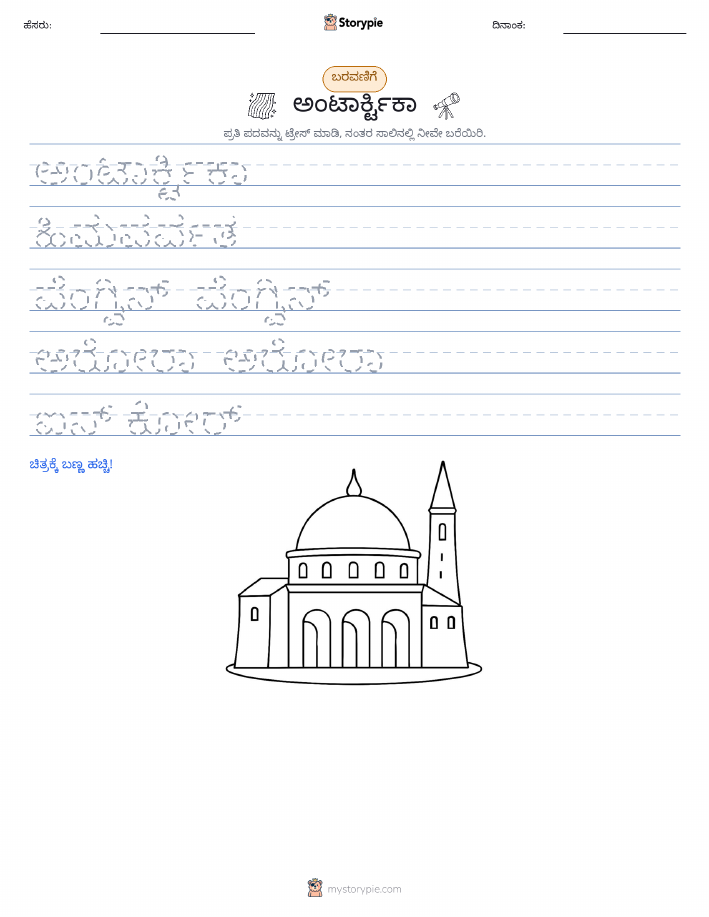 ಹೆಸರು:
Storypie
ದಿನಾಂಕ:
ಬರವಣಿಗೆ
ಅಂಟಾರ್ಕ್ಟಿಕಾ
ಪ್ರತಿ ಪದವನ್ನು ಟ್ರೇಸ್ ಮಾಡಿ, ನಂತರ ಸಾಲಿನಲ್ಲಿ ನೀವೇ ಬರೆಯಿರಿ.
ಅಂಟಾರ್ಕ್ಟಿಕಾ
ಹಿಮಪರ್ವತ
ಪೆಂಗ್ವಿನ್ ಪೆಂಗ್ವಿನ್
ಅರೋರಾ ಅರೋರಾ
ಐಸ್ ಕೋರ್
ಚಿತ್ರಕ್ಕೆ ಬಣ್ಣ ಹಚ್ಚಿ!
mystorypie.com